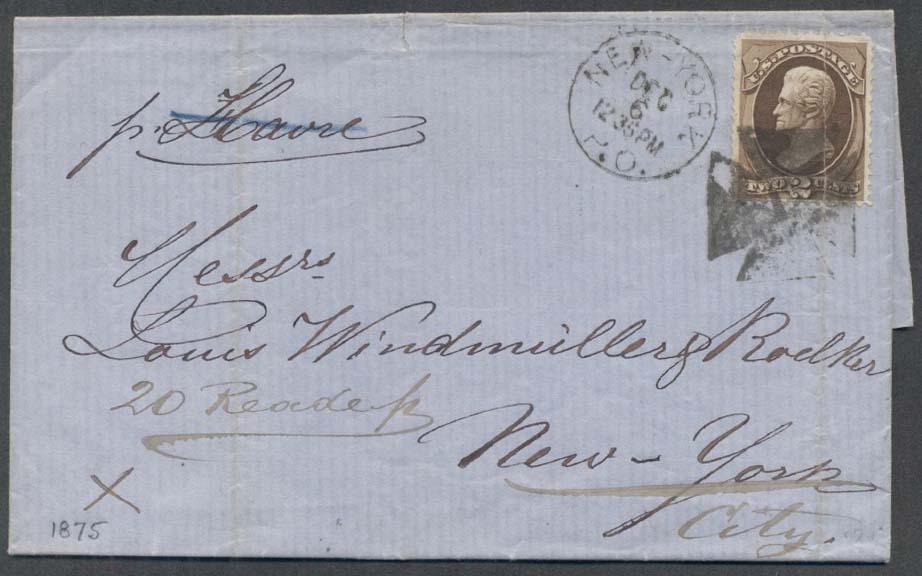 p. Havre
NEW-YORK
DEC
6
12.30PM
P.O.
U.S. POSTAGE
TWO 2 CENTS
Messrs
Louis Windmüller & Roelker
20 Reade
New-York
City.
1875